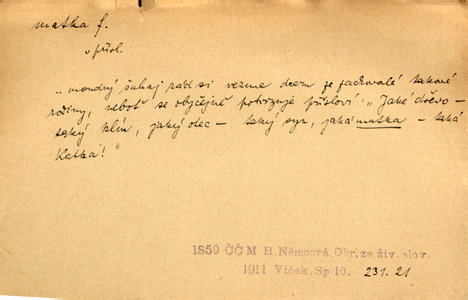 matka f.
v přísl.
„moudrý šuhaj rád si vezme dceru ze takové
rodiny, neboť se obyčejně potvrzuje přísloví: „Jaké dřevo –
taký klín, jaký otec – taký syn, jaká matka – taká
Katka!"
1859 ČČM B.Němcová,Obr.ze živ.slov.
1911 Vlček,Sp.10. 231.21